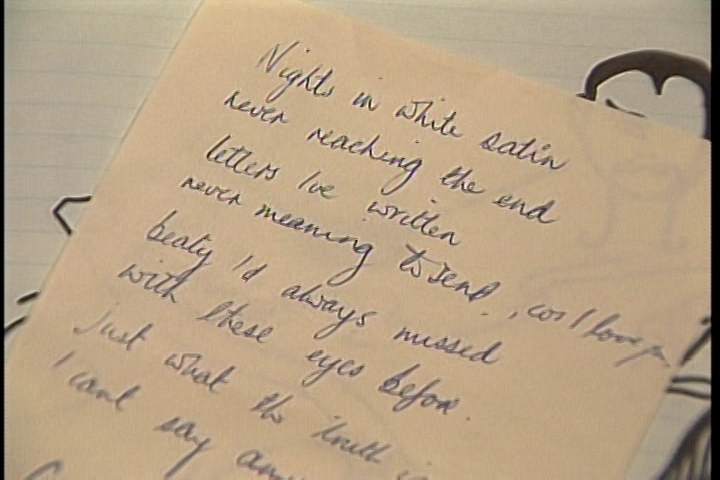 Nights in white satin
never reaching the end
letters I've written
never meaning to send, cos I love you
beaty I'd always missed
with these eyes before.
Just what the truth is
I cant say any